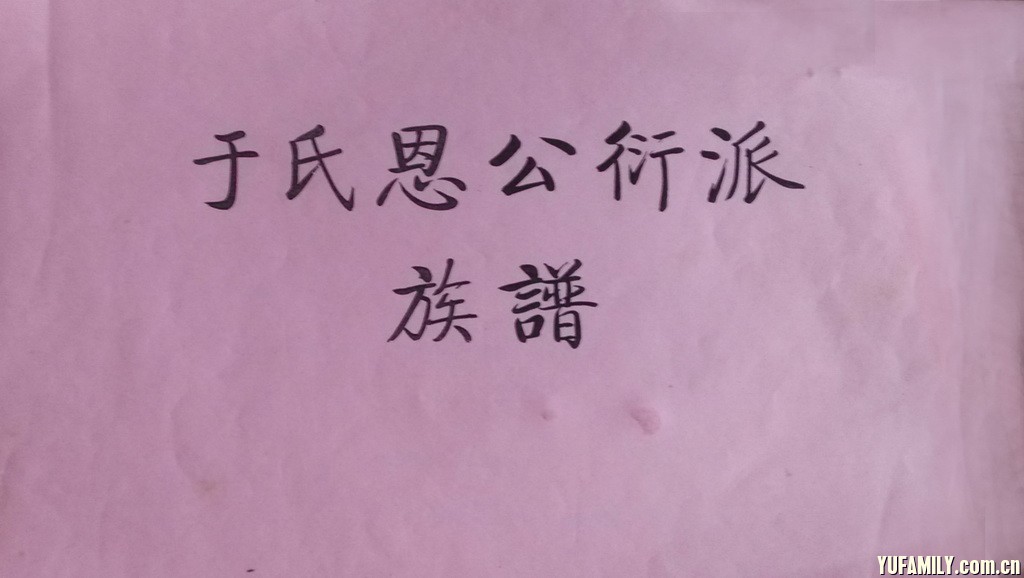 于氏恩公衍派
族譜
YUFAMILY.com.cn